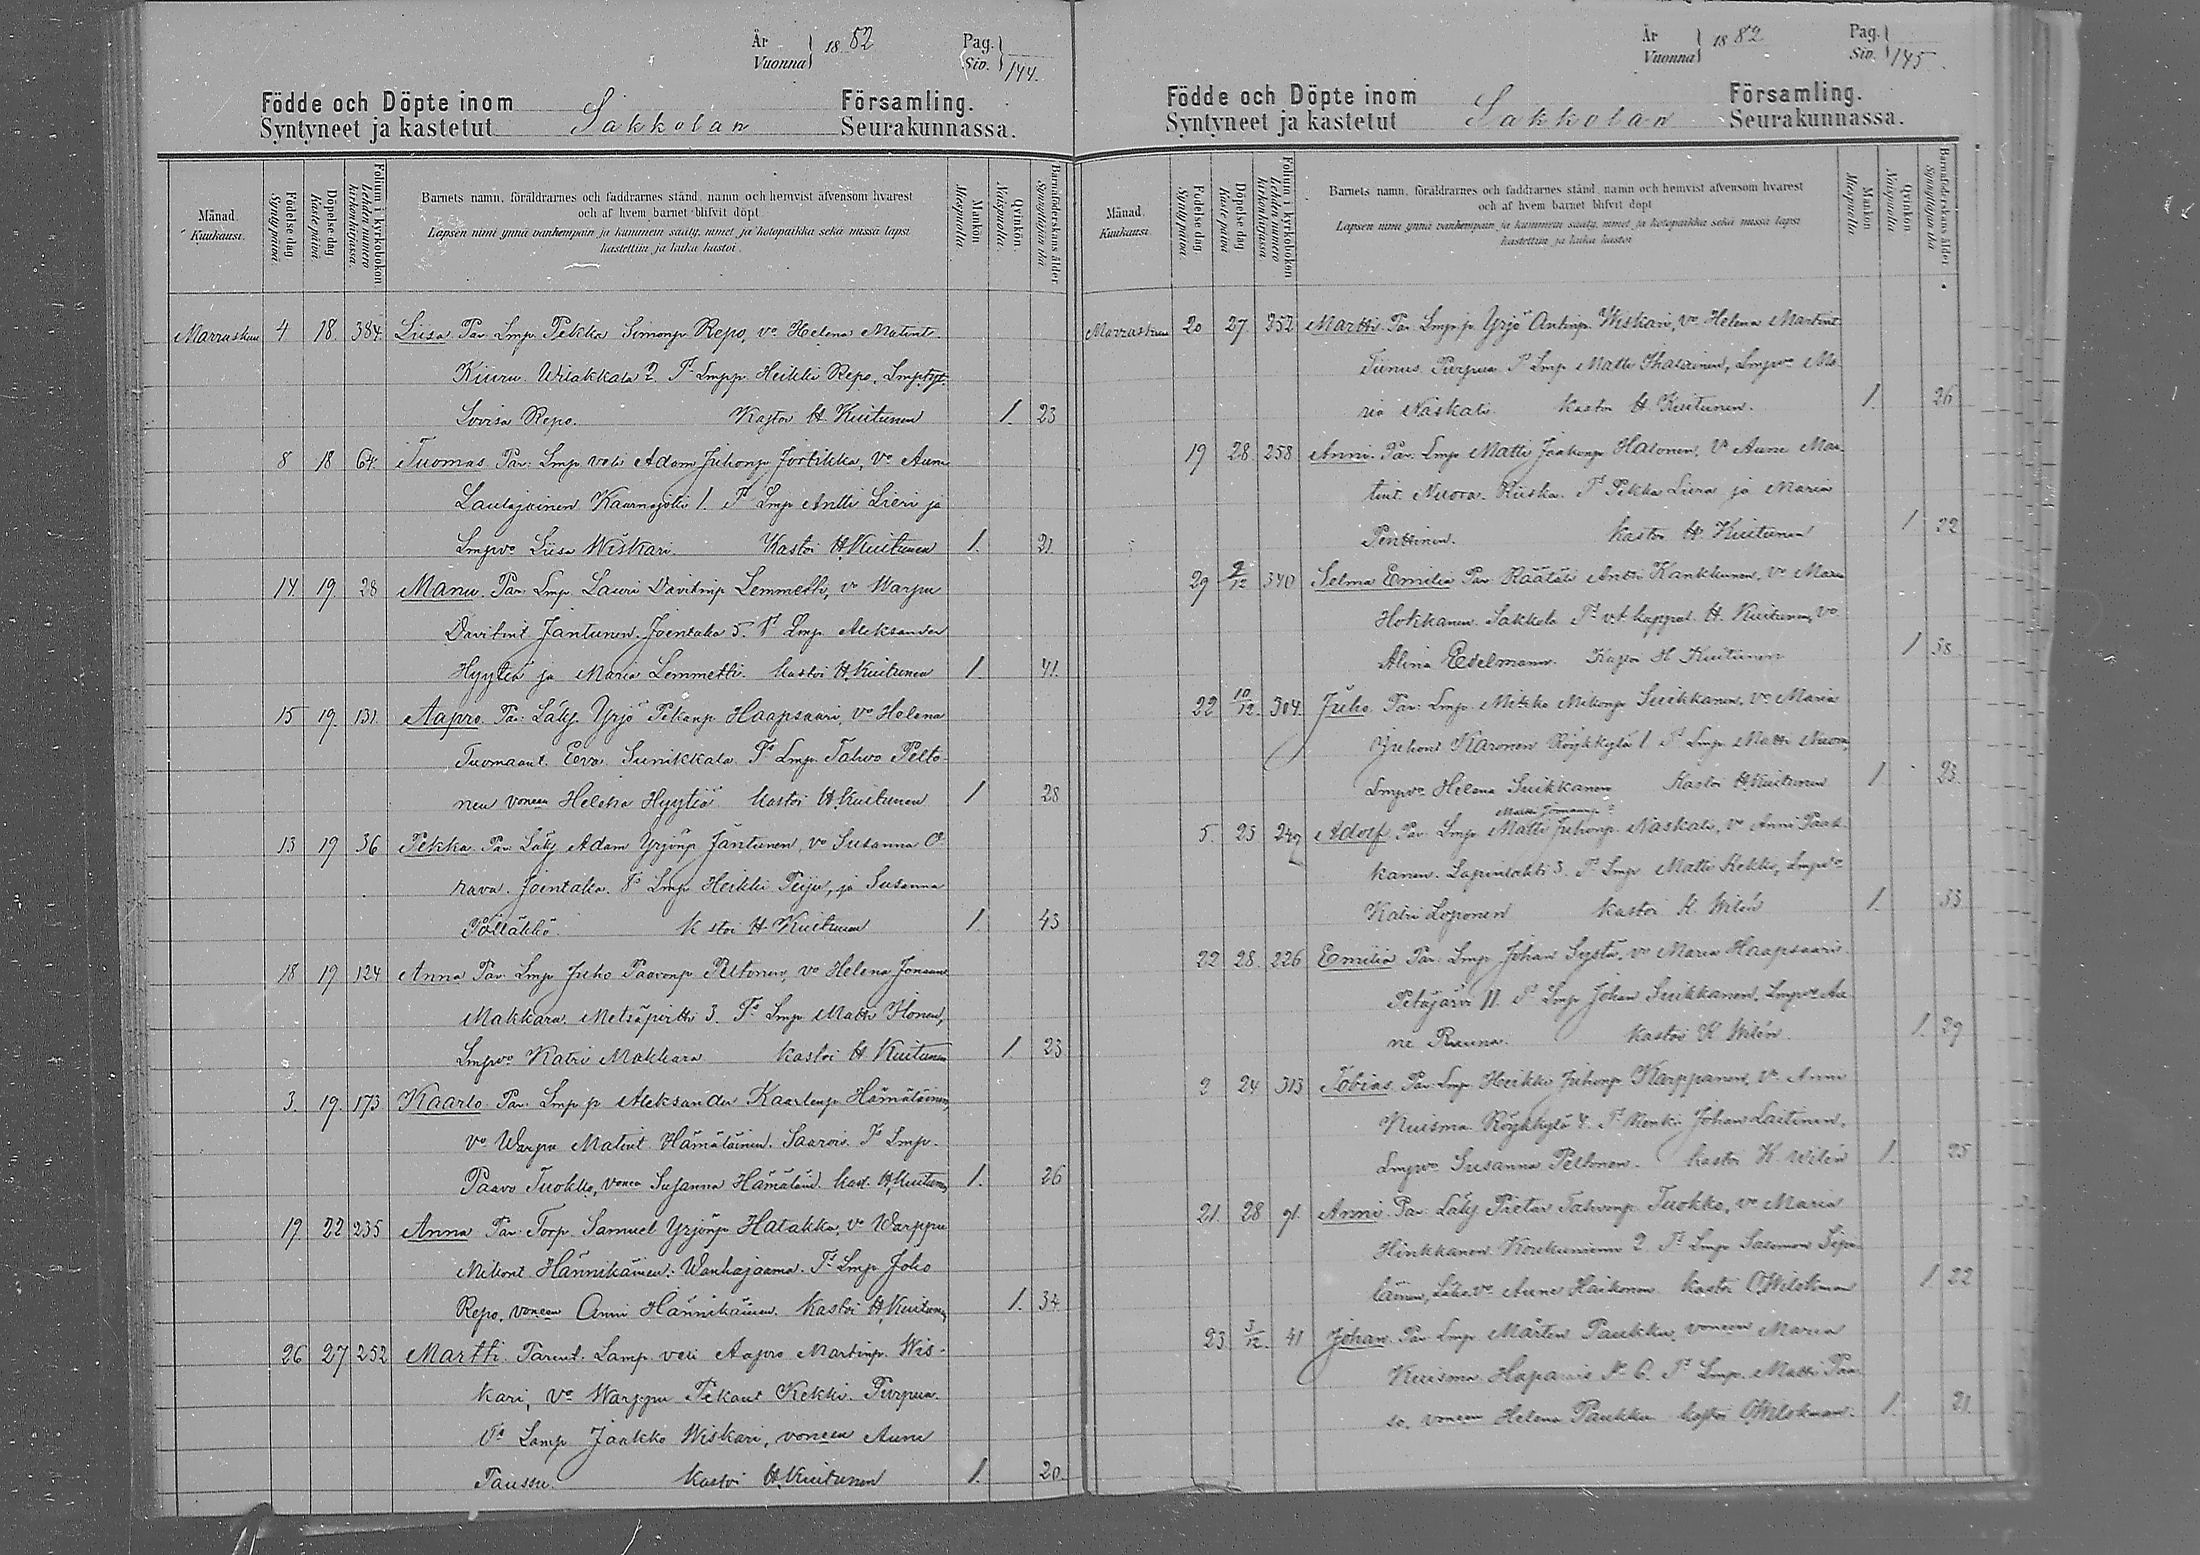 År
Vuonna
1882
Pag.
Siv.
144.
Födde och Döpte inom Sakkolan Församling.
Syntyneet ja kastetut Seurakunnassa.
Månad.
Kuukausi.
Födelsedag
Syntypäivä.
Döpelsedag
Kastepäivä
Folium i kyrkoboken
Lehden numero kirkonkirjassa.
Barnets namn, föräldrarnes och faddrarnes stånd, namn och hemvist äfvensom hvarest
och af hvem barnet blifvit döpt
Lapsen nimi ynnä vanhempain ja kummein sääty, nimet ja kotopaikka sekä missä lapsi
kastettiin ja kuka kastoi.
Mankön
Miespuolia.
Qvinkön.
Naispuolia.
Barnaföderskans ålder
Synnyttäjän ikä
Marraskuu 4 18. 384. Liisa Par Lmp. Pekka Simonp Repo, vo Helena Matint.
Kiuru. Wilakkala 2. Ts Lmpp. Heikki Repo, Lmptyt.
Lovisa Repo. Kastoi H. Kuitunen 1. 23
8 18 64. Tuomas. Par: Lmp veli Adam Juhonp Jortikka, Vo Anna
Lautajoinen Kaarnajoki 1. Ts Lmp Antti Lieri ja
Lmpvo Liisa Wiskari. Kastoi H. Kuitunen 1. 21.
14. 19. 28 Manu. Par. Lmp. Lauri Davitinp Lemmetti, vo Warpu
Davitint Jantunen. Joentaka 5. Ts Lmp. Aleksander
Hyytiä ja Maria Lemmetti. Kastoi H. Kuitunen 1. 41.
15 19. 131. Aapro. Par: Läkj. Yrjö Pekanp Haapsaari, vo Helena
Tuomaant. Eeva Sunikkala Ts Lmp. Tahvo Pelto
nen voneen Helena Hyytiä Kastoi H. Kuitunen 1 28
13 19 36 Pekka. Par Läkj Adam Yrjönp Jäntunen, vo Susanna O
rava. Joentaka. Ts Lmp Heikki Peiju, ja Susanna
Pöllähkö. Kastoi H. Kuitunen 1. 43
18 19 124 Anna Par. Lmp. Juho Paavonp Peltonen, vo Helena Jonaant
Makkara. Metsäpirtti 3. Ts Lmp Matti Honen,
Lmpvo Katri Makkara Kastoi H. Kuitunen 1 23
3. 19. 173 Kaarlo. Par. Lmp p Aleksander Kaarlenp Hämäläinen,
vo Warpu Matint Hämäläinen. Saarois. Ts Lmp.
Paavo Tuokko, vonea Susanna Hämäläin. Kast. H. Kuitunen 1. 26
19. 22 235 Anna Par Torp. Samuel Yrjönp Hatakka, vo Warppu
Mikont Hännikäinen. Wanhajaama. Ts Lmp Joho
Repo, voneen Anni Hännikäinen. Kastoi H. Kuitunen 1. 34.
26 27 252 Martti. Parent. Lamp. veli Aapro Martinp. Wis-
kari, vo Warppu Pekant Kekki. Purpua.
Ts Lamp. Jaakko Wiskari, voneen Aune
Paussu. Kastoi H. Kuitunen 1. 20.
År
Vuonna
1882
Pag.
Siv.
145.
Födde och Döpte inom Sakkolan Församling.
Syntyneet ja kastetut Seurakunnassa.
Månad.
Kuukausi.
Födelsedag
Syntypäivä.
Döpelsedag
Kastepäivä
Folium i kyrkoboken
Lehden numero kirkonkirjassa.
Barnets namn, föräldrarnes och faddrarnes stånd, namn och hemvist äfvensom hvarest
och af hvem barnet blifvit döpt
Lapsen nimi ynnä vanhempain ja kummein sääty, nimet ja kotopaikka sekä missä lapsi
kastettiin ja kuka kastoi
Mankön
Miespuolia
Qvinkön
Naispuolia
Barnaföderskans ålder
Synnyttäjän ikä
Marraskuu 20 27. 252 Martti. Par. Lmp.p. Yrjö Antinp. Wiskari, vo Helena Martint.
Purpua Ts Lmp Matti Ihalainen, Lmpvo Ma
ria Naskali. Kastoi H. Kuitunen. 1. 26
19 28 258 Anni. Par. Lmp Matti Jaakonp Halonen, Vo Aune Mar
tint. Nuora. Riiska. Ts Pekka Liera ja Maria
Penttinen. Kastoi H. Kuitunen 1 22
29 2/12 340 Selma Emilia Par. Räätäli Antti Kankkunen, vo Maria
Hokkanen. Sakkola Ts vt kappal. H. Kuitunen, vo
Alina Edelmann. Kastoi H Kuitunen 1 38
22 10/12. 304. Juho. Par. Lmp. Mikko Mikonp Suikkanen, vo Maria
Juhont Karonen Röykkylä 1. Ts Lmp Matti Nuora,
Lmpvo Helena Suikkanen Kastoi H. Kuitunen 1 23.
5. 25 249 Adolf Par. Lmp. Matti Juhonp. Naskali, vo Anni Paak-
kanen. Lapinlahti 3. Ts Lmp Matti Kekki, Lmpvo
Katri Loponen Kastoi K. Wilén 1. 33
22 28. 226 Emilia Par. Lmp Johan Systä, vo Maria Haapsaari
Petäjärvi 11. Ts Lmp Johan Suikkanen, Lmpvo An
ne Rauna. Kastoi K Wilén. 1. 29
2 24 313 Tobias. Par. Lmp. Heikki Juhonp Karppanen, vo Anni
Kuisma Röykkylä 4. Ts Renki Johan Laitinen,
Lmpvo Susanna Peltonen. Kastoi K. Wilén 1. 25
21. 28 91. Anni. Par. Läkj Pietar Tahvonp Tuokko, vo Maria
Hinkkanen. 2 Ts Lmp Salomon
läinen, vo Aune Haikonen Kastoi O. Wilskman 1 22
23. 3/12. 41 Johan. Par. Lmp Mårten Paukku, voneen Maria
Kuisma Haparais No 6. Ts Lmp. Matti
voneen Helena Paukku Kastoi O. Wilskman. 1. 21.